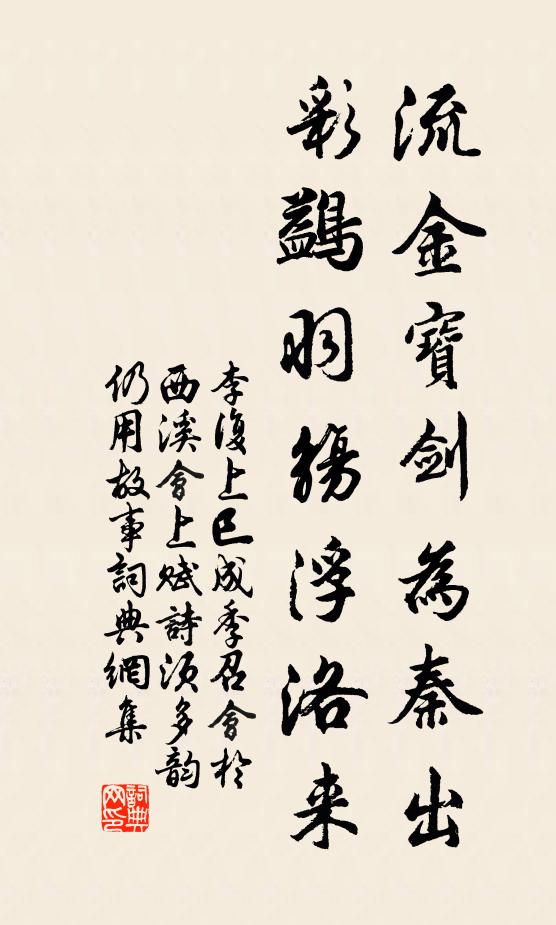 流金寶劍為秦出
彩鷁羽觴浮洛来
李復上巳成季召會於
西溪會上賦詩須多韵
仍用故事詞典網集
詞典
网印